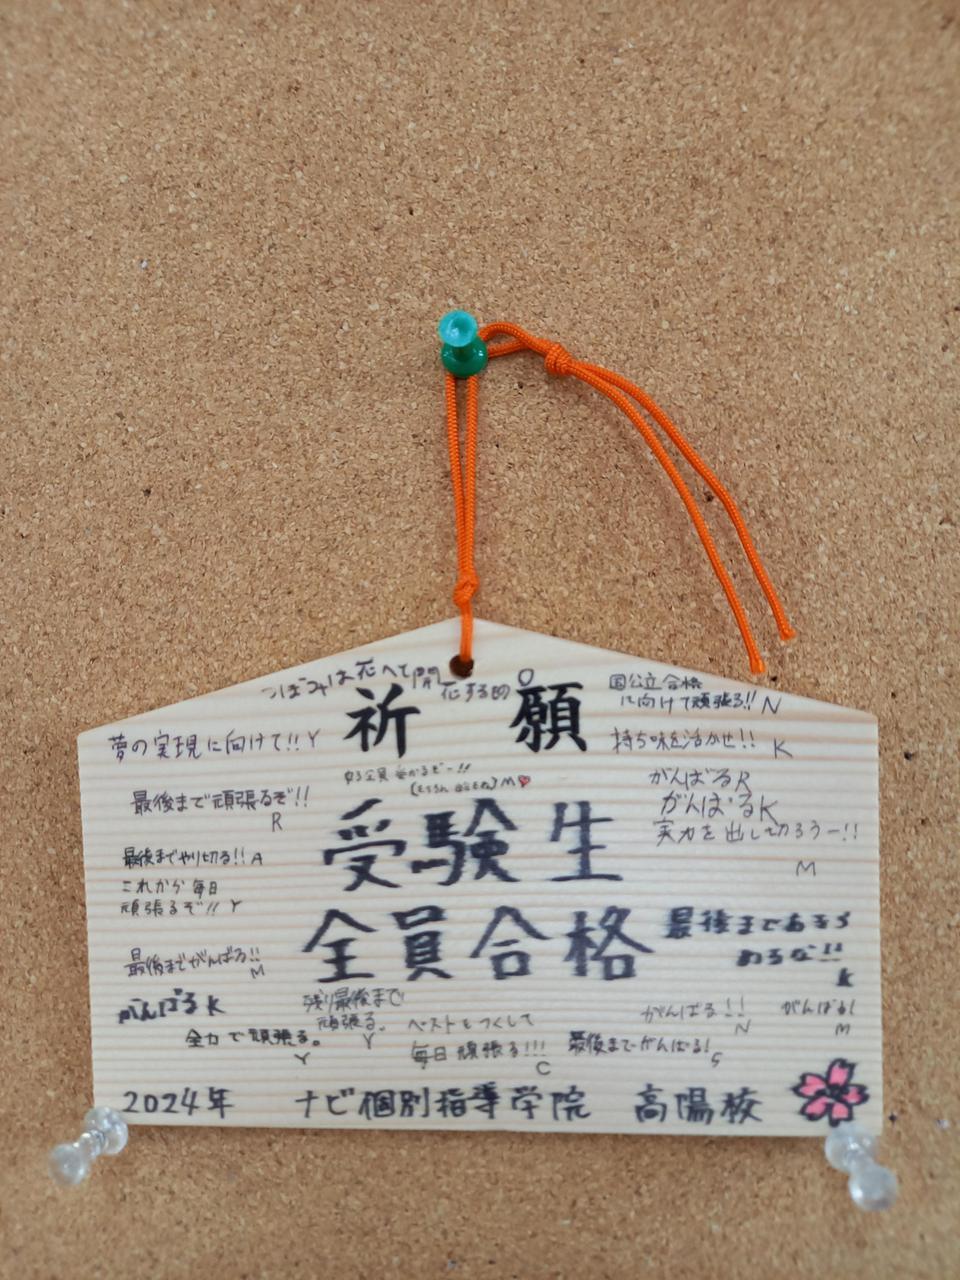 つぼみは花へて開
花する的
祈 願
国公立合格
に向けて頑張る!! N
夢の実現に向けて!! Y
持ち味を活かせ!! K
受かるぞー!!
M
最後まで頑張るぞ!!
R
がんばるR
がんばるK
実力を出し切ろうー!!
M
受験生
最後までやり切る!! A
これから毎日
頑張るぞ!! Y
全員合格
最後まであきら
めるな!!
K
最後までがんばる!!
M
がんばる K
残り最後まで
頑張る。
Y
全力で頑張る。
Y
ベストをつくして
毎日頑張る!!!
C
がんばる!!
N
がんばる!
M
最後までがんばる!
S
2024年 ナビ個別指導学院 高陽校